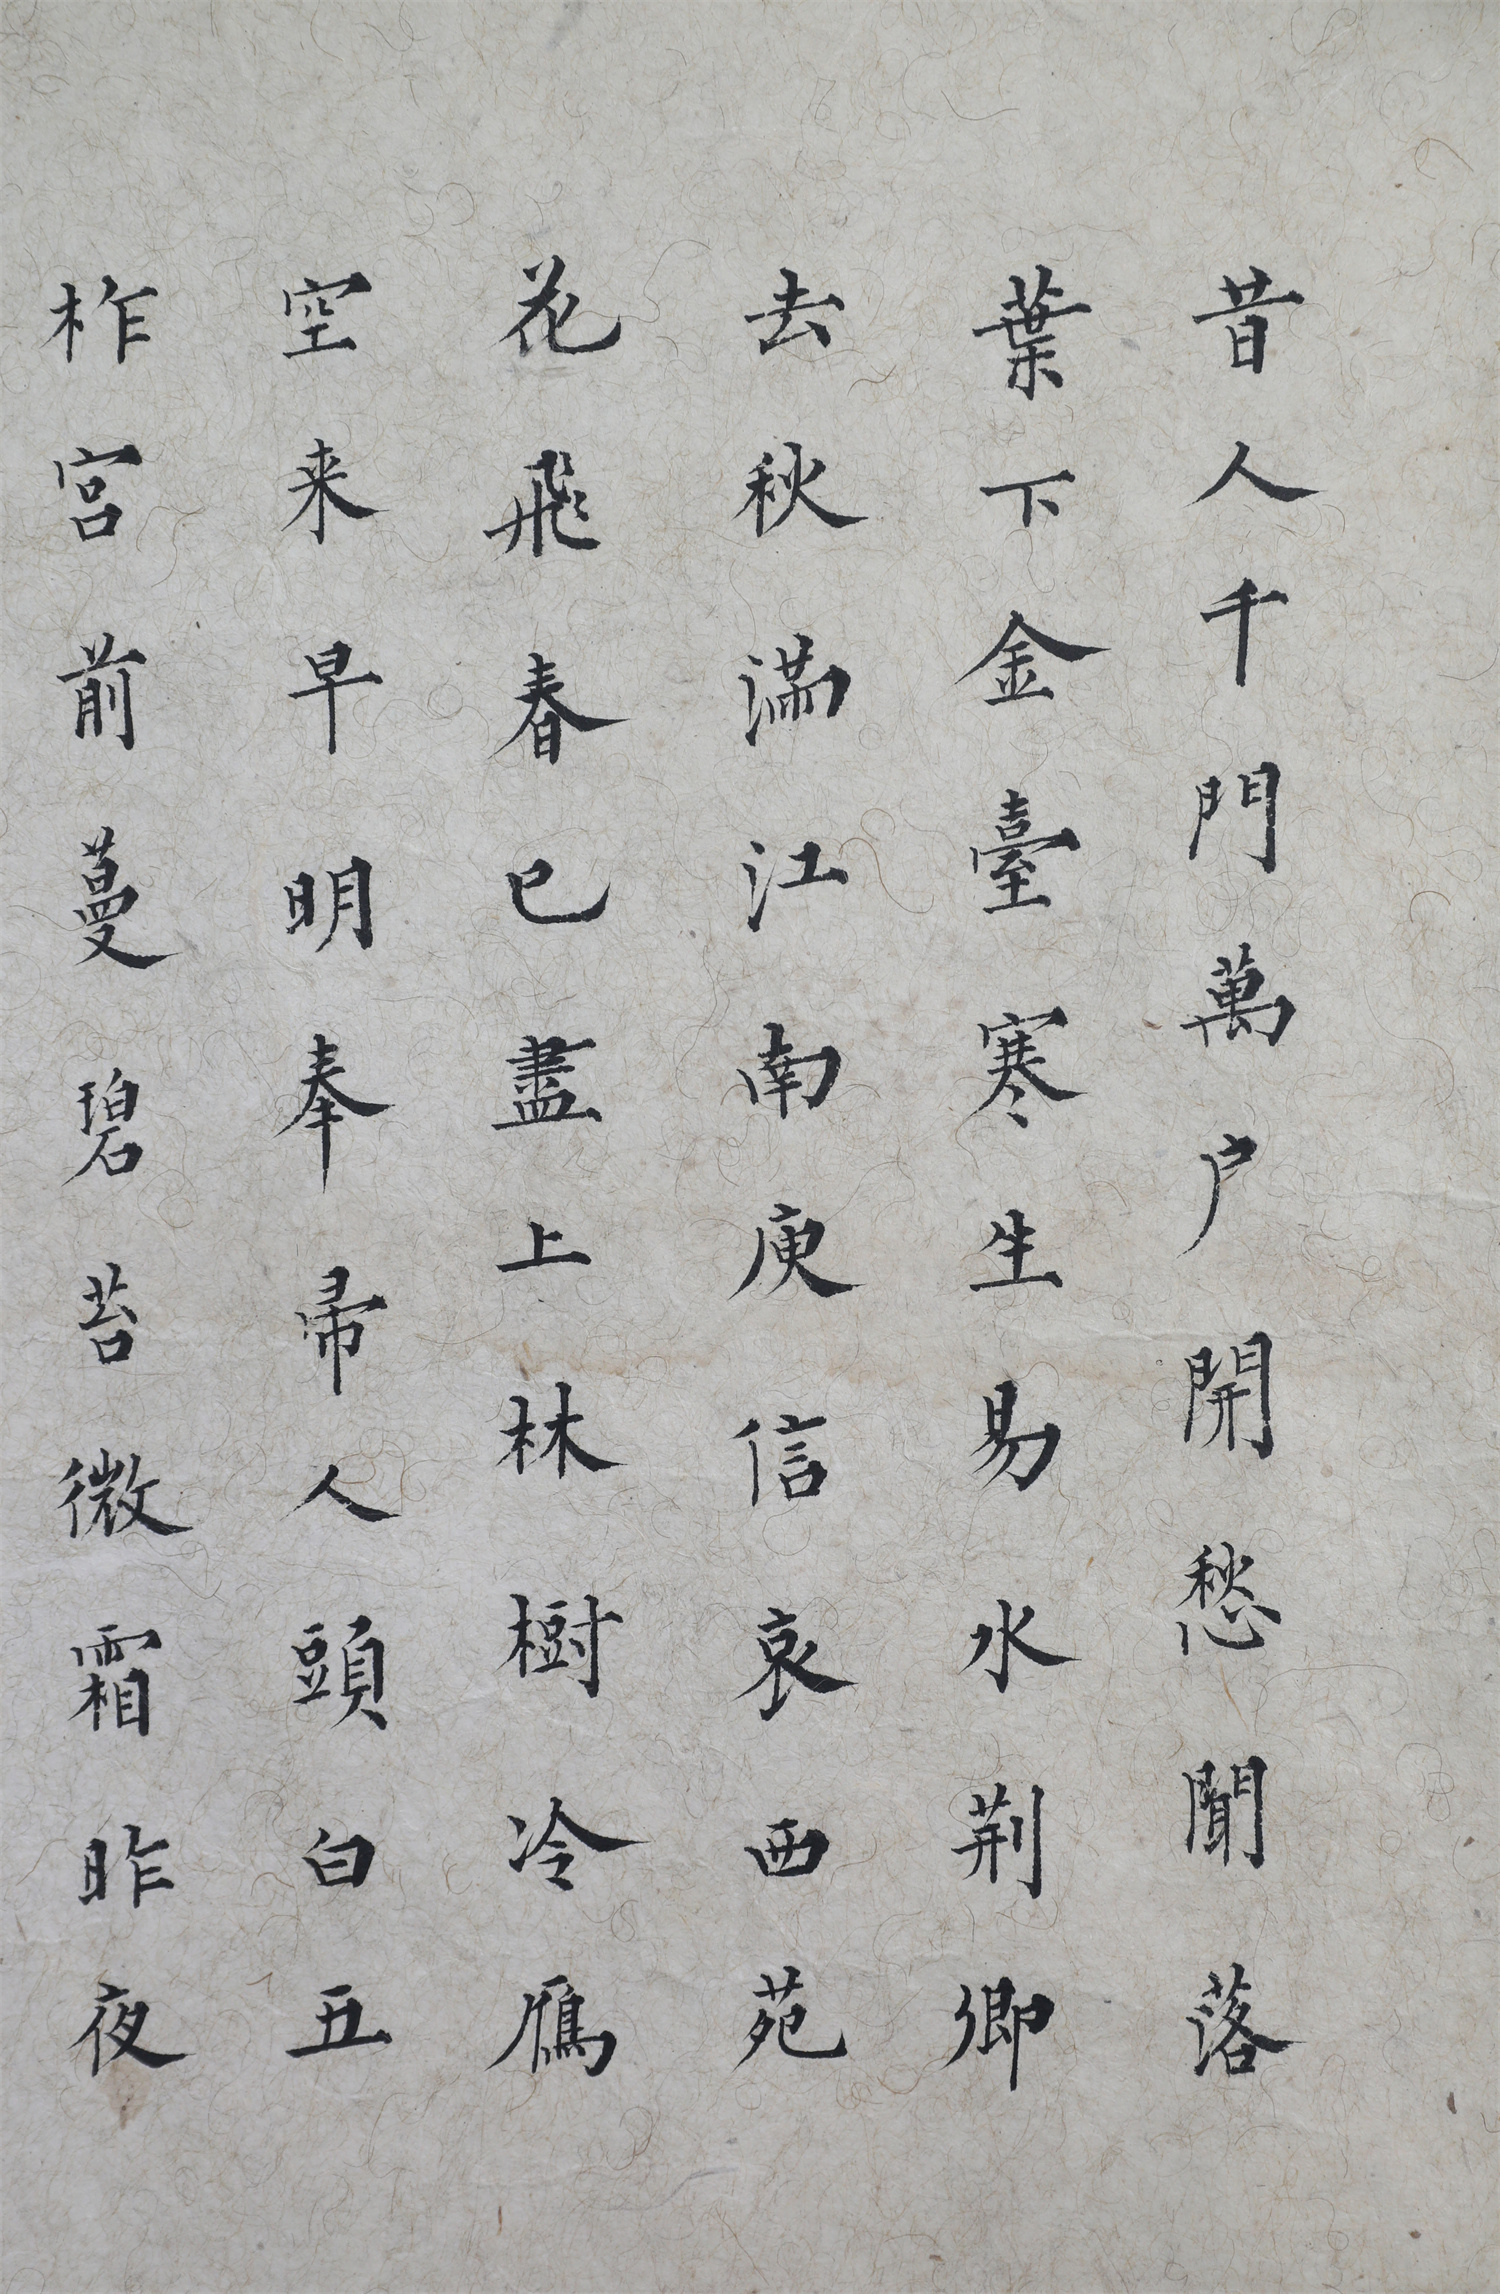 昔人千門萬户開愁聞落
葉下金臺寒生易水荆卿
去秋滿江南庾信哀西苑
花飛春已盡上林樹冷雁
空来早明奉帚人頭白五
柞宫前蔓碧苔微霜昨夜